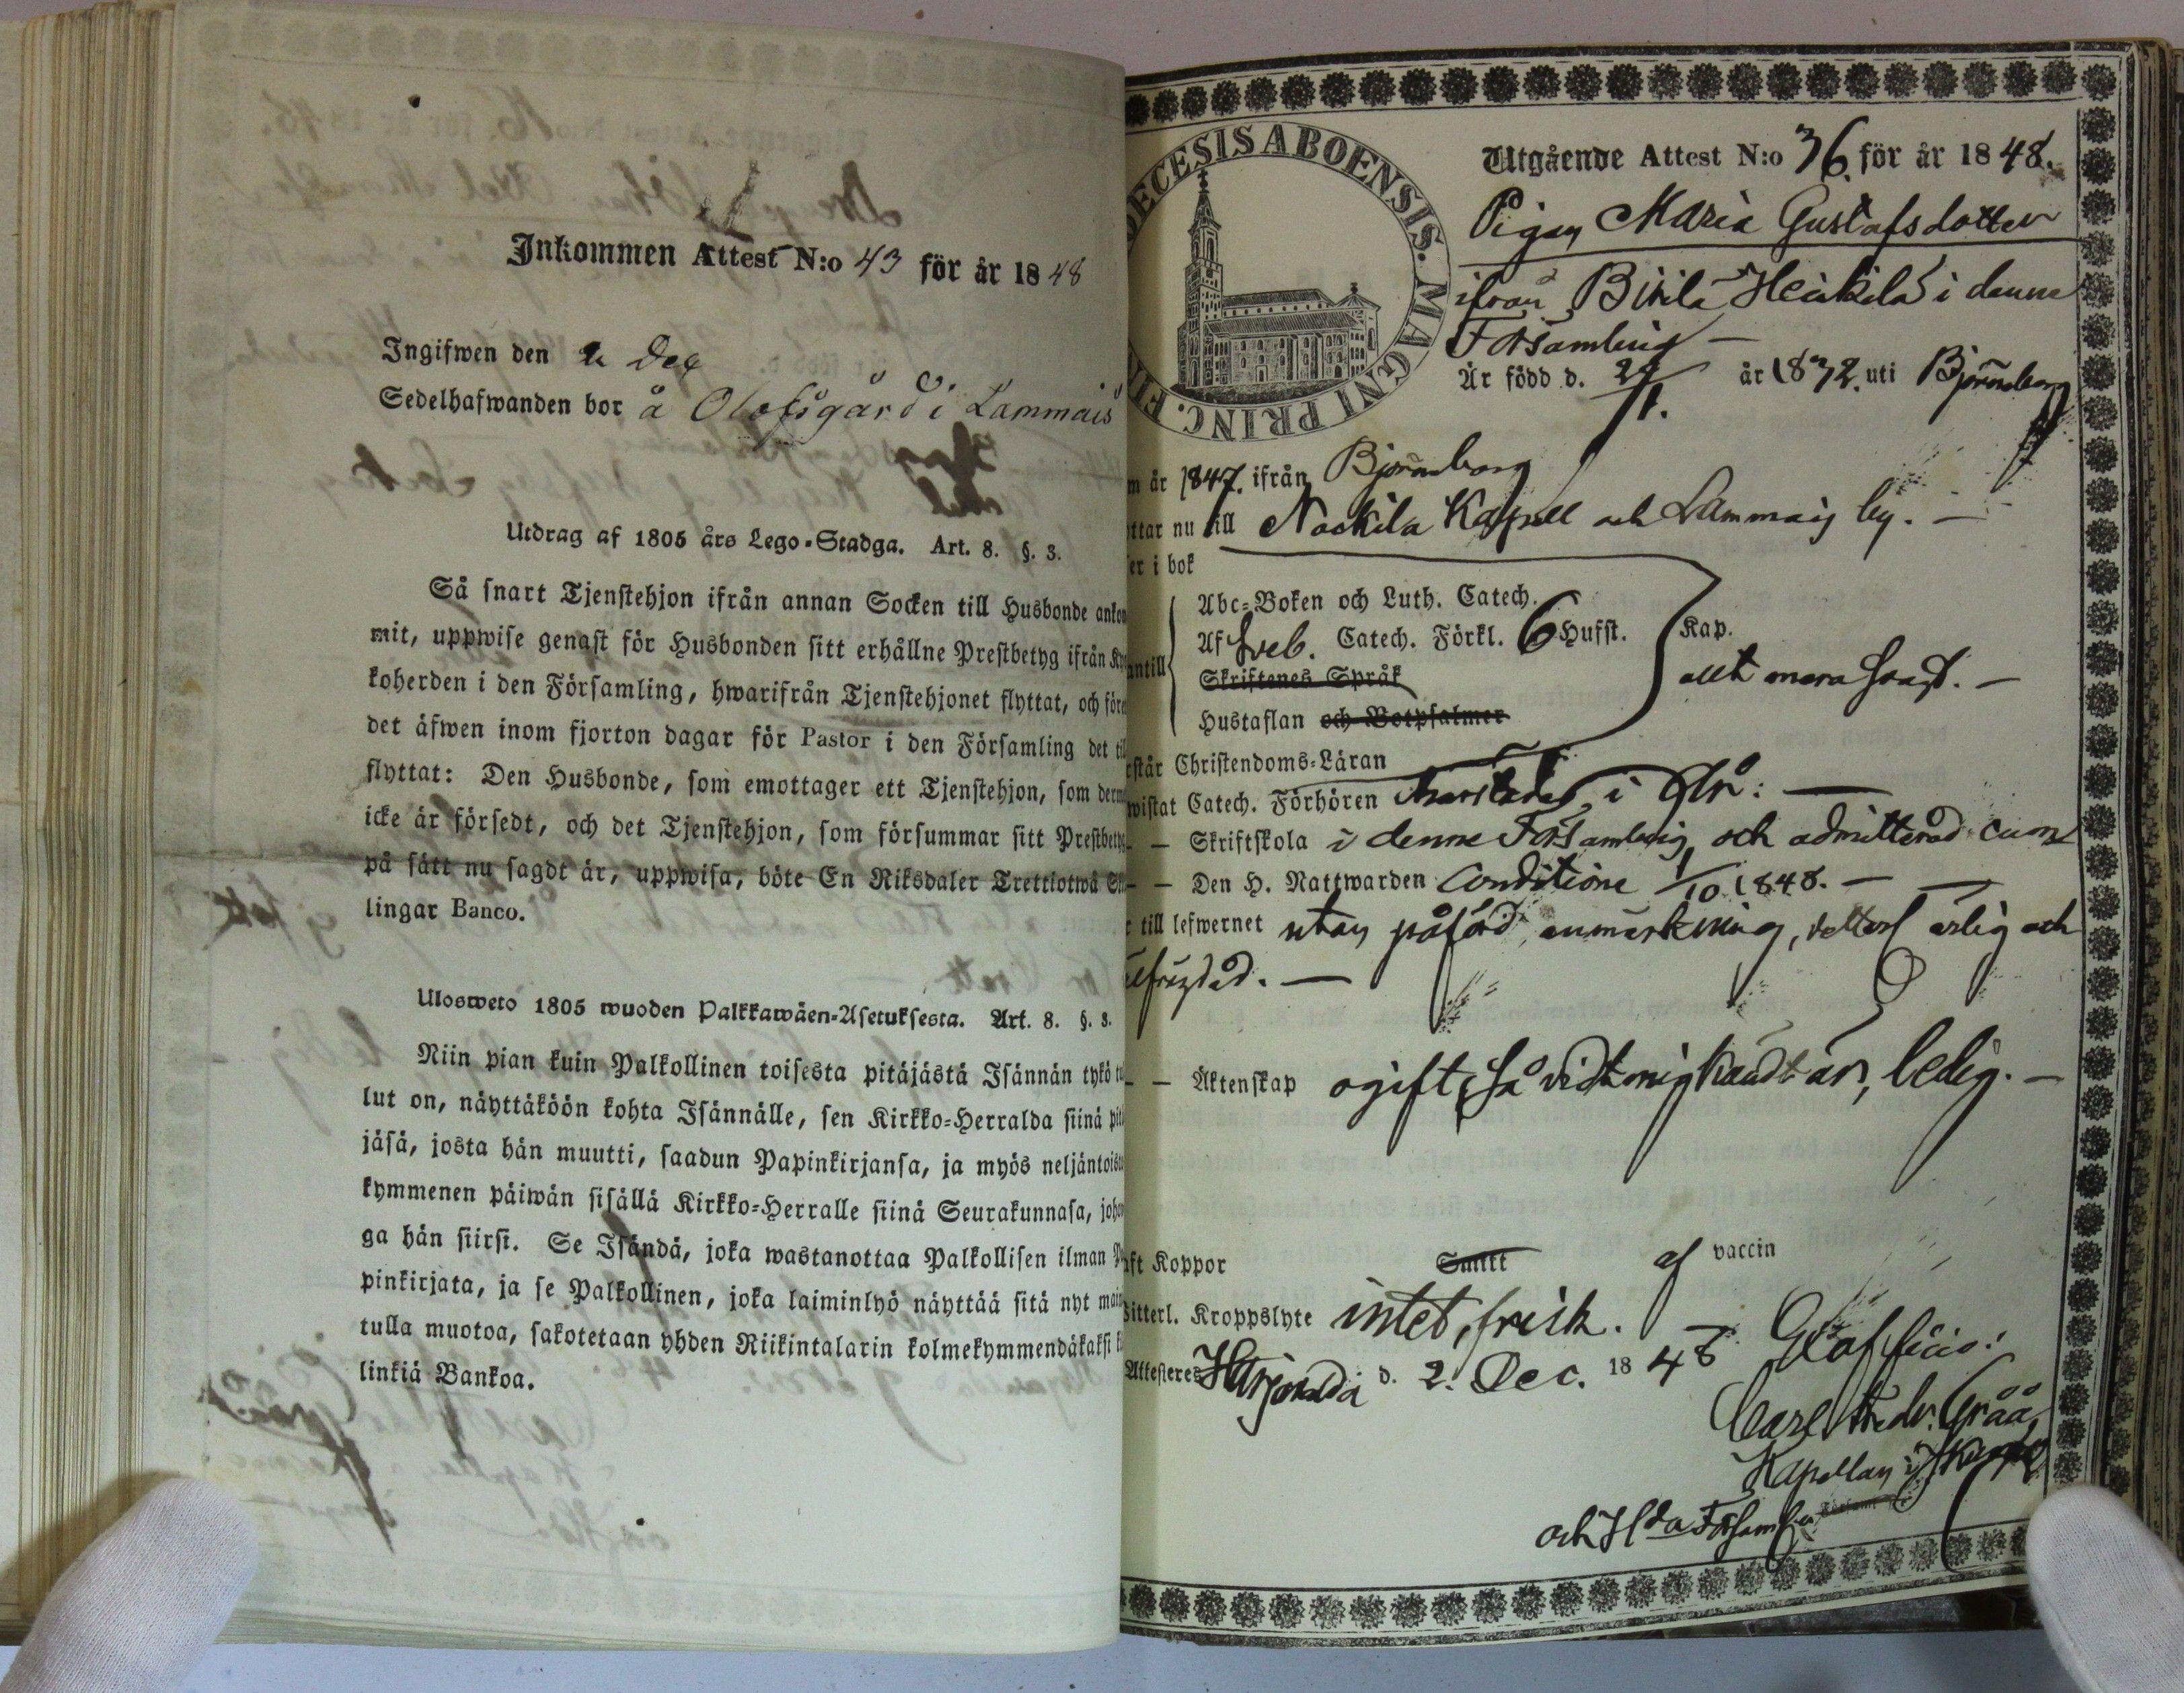 Inkommen Attest N:o 43 för år 1848
Ingifwen den 2 Dec
Sedelhafwanden bor å Olofsgård i Lammais
Utdrag af 1805 års Lego-Stadga. Art. 8. §. 3.
Så snart Tjenstehjon ifrån annan Socken till Husbonde ankom
mit, uppwise genast för Husbonden sitt erhållne Prestbetyg ifrån Ky
koherden i den Församling, hwarifrån Tjenstehjonet flyttat, och före
det äfwen inom fjorton dagar för Pastor i den Församling det til
flyttat: Den Husbonde, som emottager ett Tjenstehjon, som derm
icke är försedt, och det Tjenstehjon, som försummar sitt Prestbetyg
på sätt nu sagdt är, uppwisa, böte En Riksdaler Trettiotwå Sk
lingar Banco.
Ulosweto 1805 wuoden Palkkawäen-Asetuksesta. Art. 8. §. 3.
Niin pian kuin Palkollinen toisesta pitäjästä Isännän tykö tu
lut on, näyttäköön kohta Isännälle, sen Kirkko-Herralda siinä pit
jäsä, josta hän muutti, saadun Papinkirjansa, ja myös neljäntoista
kymmenen päiwän sisällä Kirkko-Herralle siinä Seurakunnasa, johon
ga hän siirsi. Se Isändä, joka wastanottaa Palkollisen ilman Pa
pinkirjata, ja se Palkollinen, joka laiminlyö näyttää sitä nyt main
tulla muotoa, sakotetaan yhden Riikintalarin kolmekymmendäkaksi k
linkiä Bankoa.
DECESIS ABOENSIS. MAGNI PRINC. FIN
Utgående Attest N:o 36 för år 1848.
Pigan Maria Gustafsdotter
ifrån Birila Heikilä i denne
Församling —
Är född d. 24/1. år 1832. uti Björneborg
m år 1847. ifrån Björneborg
ttar nu till Nackila Kapell och Lammais by. —
er i bok
Abc-Boken och Luth. Catech.
antill Af Sveb. Catech. Förkl. 6 Hufst. Kap.
Skriftenes Språk allt mera svagt. —
Hustaflan och Botpsalmer
rstår Christendoms-Läran
wistat Catech. Förhören i
— Skriftskola i denne Församling, och admitterad cum
— Den H. Nattwarden Conditione 1/10 1848. —
r till lefwernet utan påförd anmärkning, ärlig och
— Äktenskap ogift, så vidt mig kändt är, ledig. —
aft Koppor Smitt af vaccin
Witterl. Kroppslyte intet, frisk. —
Attesteres Harjunda d. 2. Dec. 1848 Ex officio:
Carl Fredr. Gråå,
Kapellan i
och Hda Församl.